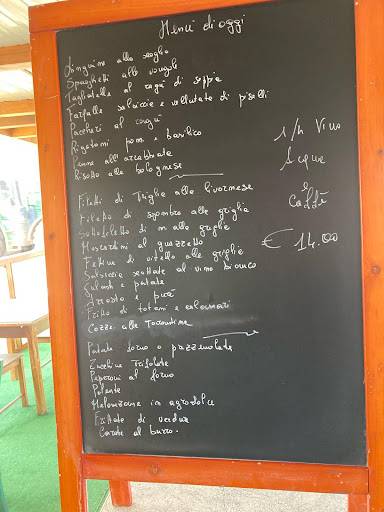 Menù di oggi
Linguine allo scoglio
Spaghetti alle vongole
Tagliatelle al ragù di seppie
Farfalle salsiccia e vellutata di piselli
Paccheri al ragù
Rigatoni pom. e basilico
Penne all'arrabbiata
Risotto alla bolognese
Filetti di Triglie alla livornese
Filetto di sgombro alla griglia
Sottofiletto di m alla griglia
Moscardini al guazzetto
Fettine di vitello alla griglia
Salsiccia scottata al vino bianco
Gulash e patate
Arrosto e purè
Fritto di totani e calamari
Cozze alla Tarantina
Patate forno o prezzemolate
Zucchine Trifolate
Peperoni al forno
Polenta
Melanzane in agrodolce
Frittate di verdure
Carote al burro.
1/4 Vino
Acqua
e
Caffè
€ 14.00